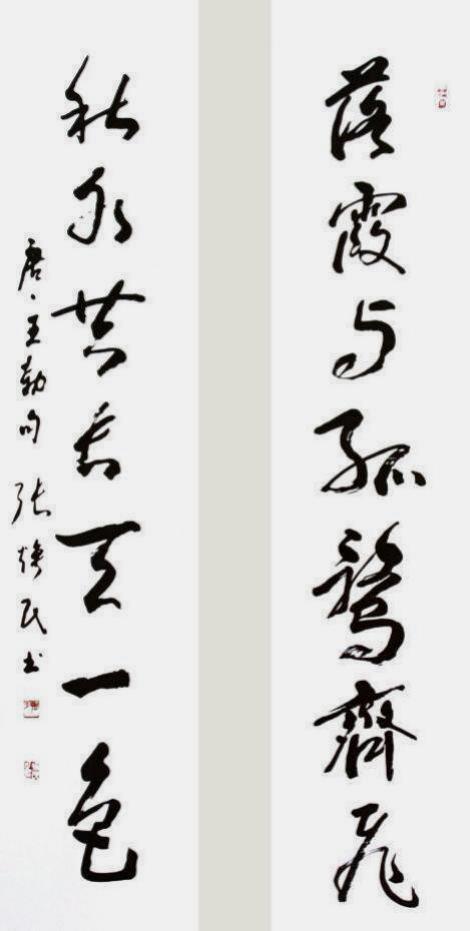 落霞与孤鹜齊飞
秋水共长天一色
唐·王勃句 张焕民书